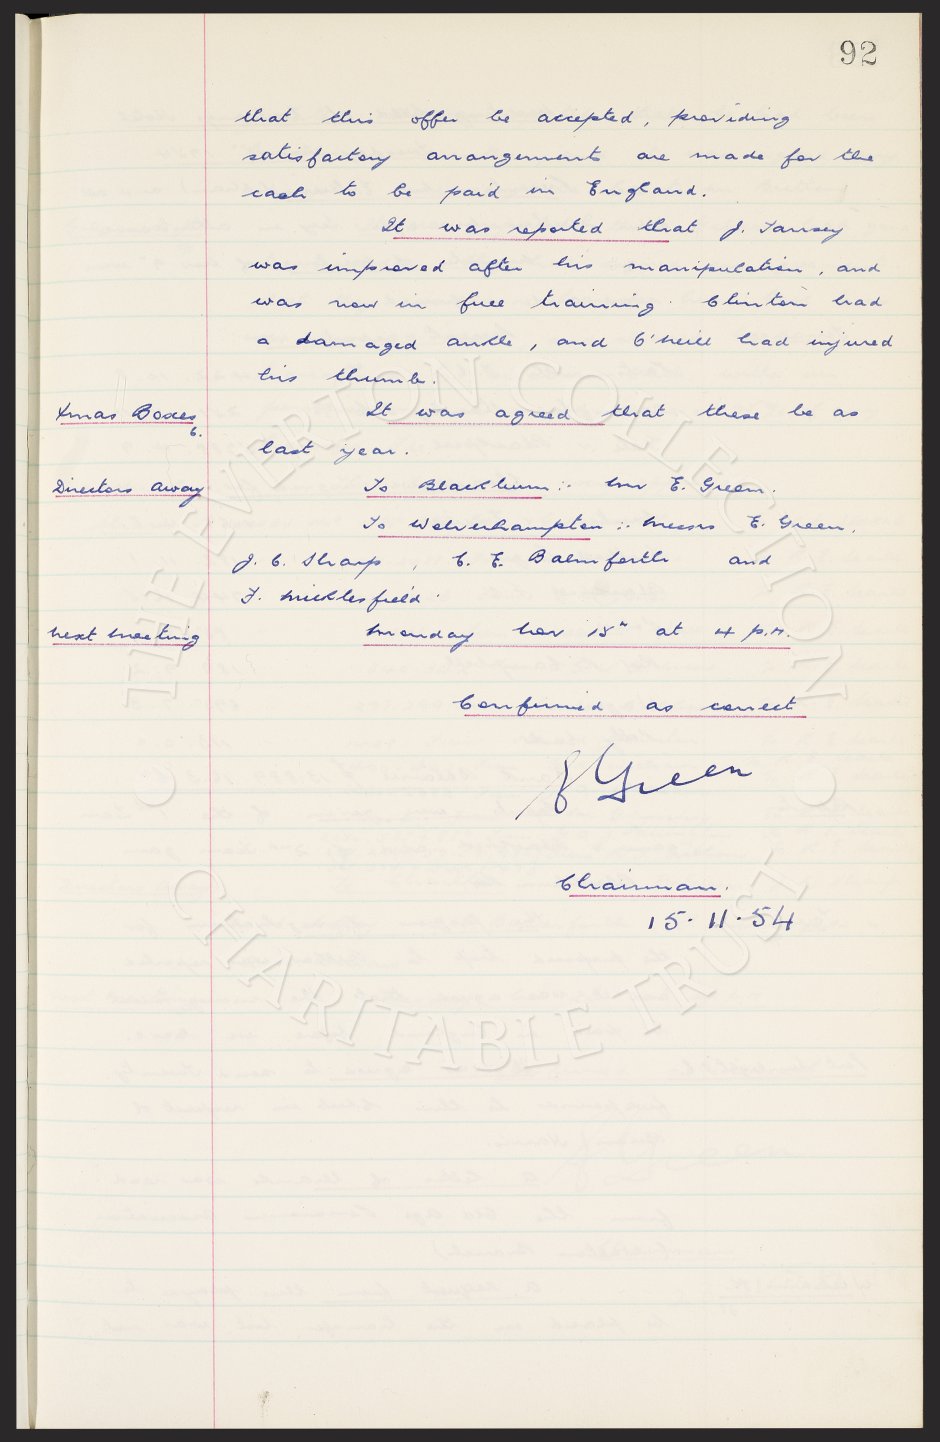 92
that this offer be accepted, providing
satisfactory arrangements are made for the
cash to be paid in England.
It was reported that J. Tansey
was improved after his manipulation, and
was now in full training. Clinton had
a damaged ankle, and O'Neill had injured
his thumb.
Xmas Boxes It was agreed that these be as
6.
last year.
Directors Away To Blackburn :- Mr E. Green.
To Wolverhampton :- Messrs E. Green,
J. C. Sharp, C. E. Balmforth and
F. Micklesfield.
Next Meeting Monday Nov 15" at 4 p.m.
Confirmed as correct
E Green
Chairman.
15.11.54
© THE EVERTON COLLECTION
CHARITABLE TRUST